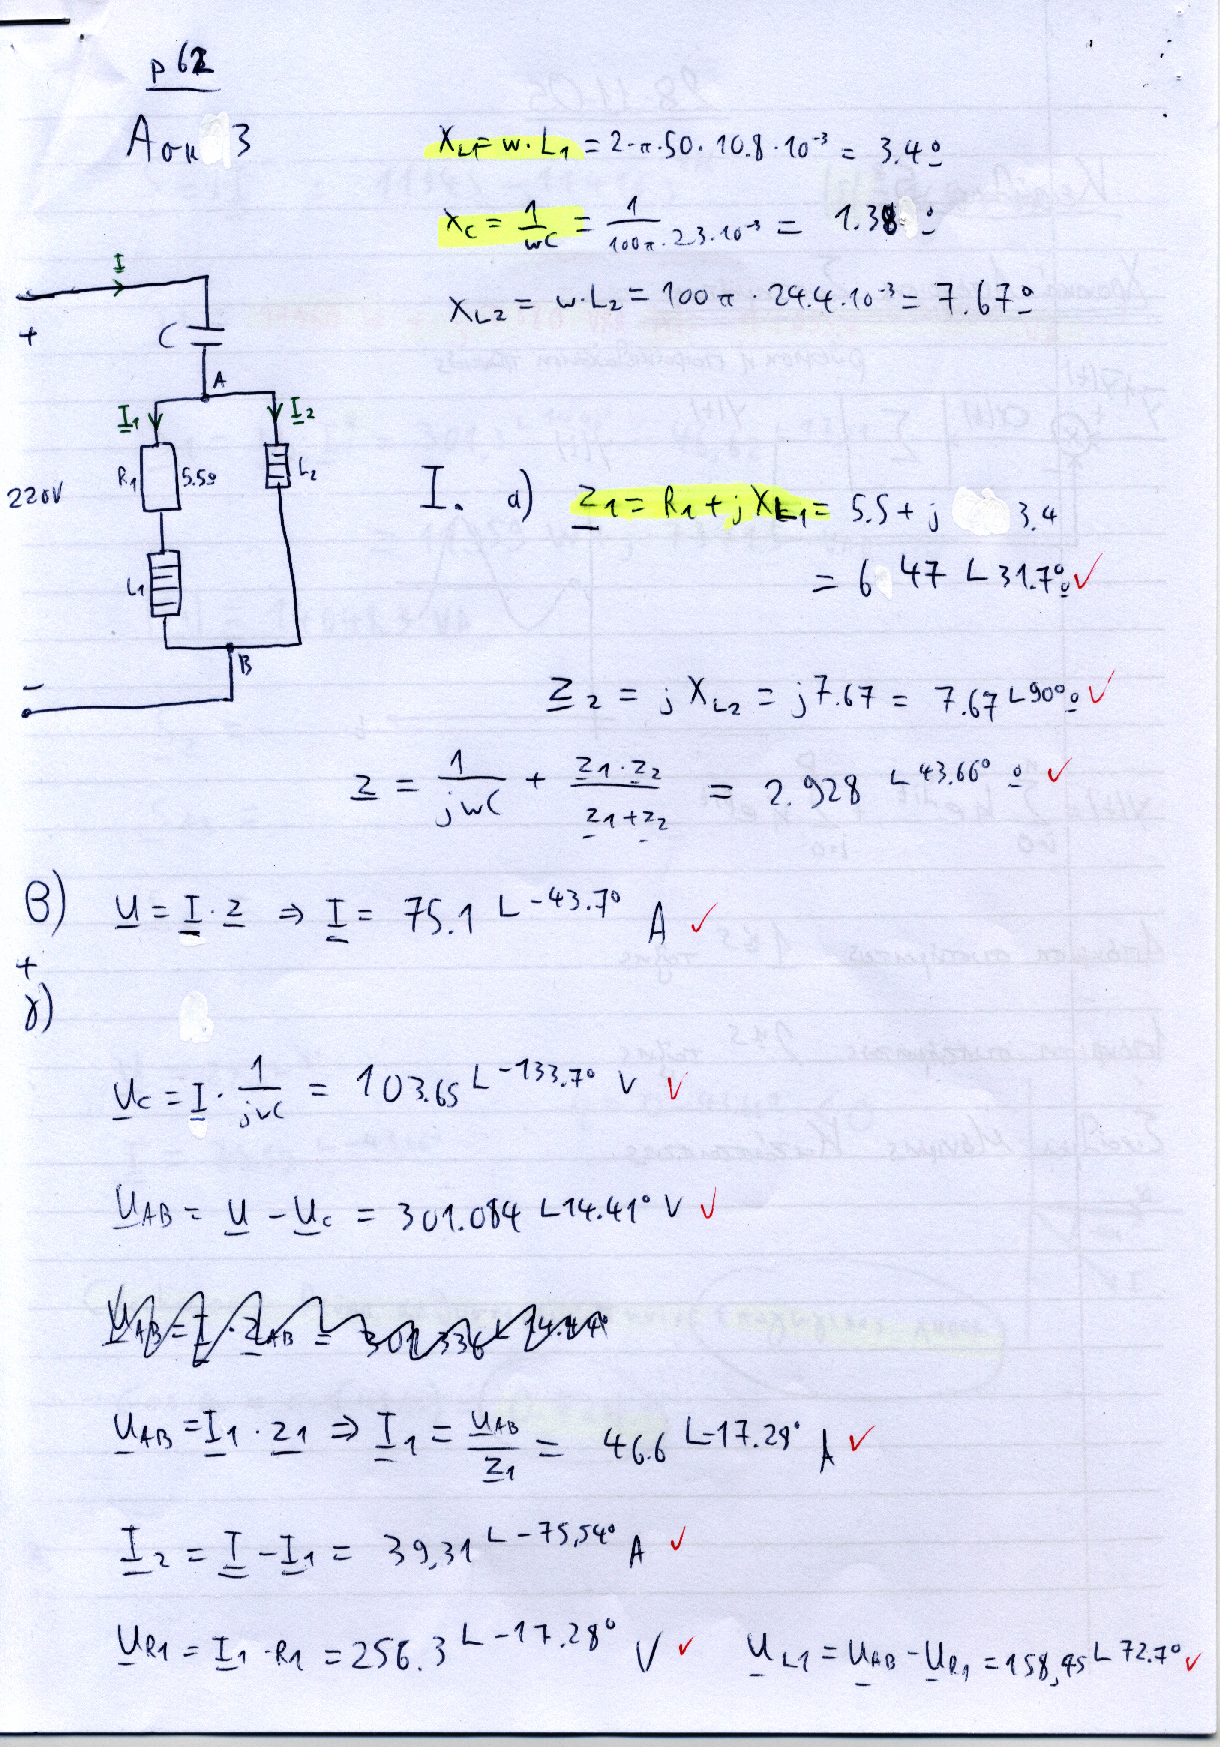 p 62
Aσκ 3
X_L1 = w·L_1 = 2·π·50·10.8·10^-3 = 3.4 Ω
X_C = 1/wC = 1/(100π·2.3·10^-3) = 1.38 Ω
X_L2 = w·L_2 = 100π·24.4·10^-3 = 7.67 Ω
I
+
C
A
I_1
I_2
R_1
5.5Ω
L_2
220V
L_1
B
-
I. α) Z_1 = R_1 + jX_L1 = 5.5 + j 3.4
= 6 47 ∟31.7° Ω ✓
Z_2 = jX_L2 = j7.67 = 7.67 ∟90° Ω ✓
Z = 1/jwC + Z_1·Z_2/(Z_1+Z_2) = 2.928 ∟43.66° Ω ✓
β) U = I·Z ⇒ I = 75.1 ∟-43.7° A ✓
+
γ)
U_C = I · 1/jwC = 103.65 ∟-133.7° V ✓
U_AB = U - U_C = 301.084 ∟14.41° V ✓
U_AB = I_1·Z_1 ⇒ I_1 = U_AB/Z_1 = 46.6 ∟-17.29° A ✓
I_2 = I - I_1 = 39,31 ∟-75,54° A ✓
U_R1 = I_1·R_1 = 256.3 ∟-17.28° V ✓ U_L1 = U_AB - U_R1 = 158,45 ∟72.7° ✓